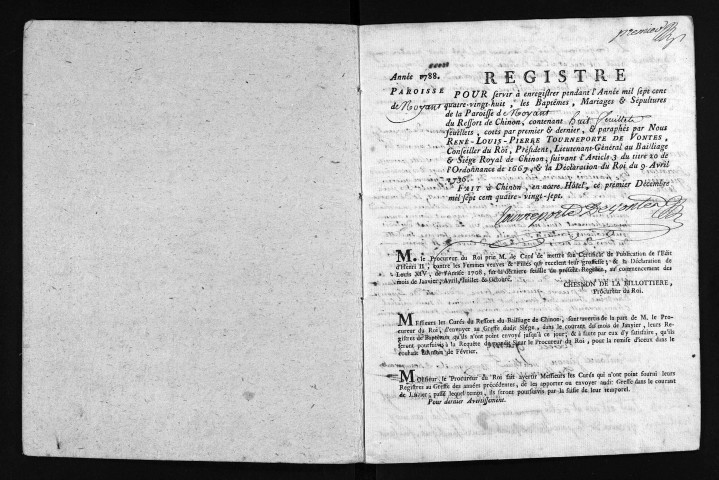 premier
Année 1788.
REGISTRE
PAROISSE
de Noyant
POUR servir à enregistrer pendant l'Année mil sept cent
quatre-vingt-huit, les Baptêmes, Mariages & Sépultures
de la Paroisse de Noyant
du Ressort de Chinon, contenant huit feuillets
feuillets, cotés par premier & dernier, & paraphés par Nous
RENÉ-LOUIS-PIERRE TOURNEPORTE DE VONTES,
Conseiller du Roi, Président, Lieutenant-Général au Bailliage
& Siége Royal de Chinon, suivant l'Article 3 du titre 20 de
l'Ordonnance de 1667, & la Déclaration du Roi du 9 Avril
1736.
FAIT à Chinon, en notre Hôtel, ce premier Décembre
mil sept cent quatre-vingt-sept.
Tourneporte De Vontes
M. le Procureur du Roi prie M. le Curé de mettre son Certificat de Publication de l'Edit
d'Henri II, contre les Femmes veuves & Filles qui recelent leur grossesse, & la Déclaration de
Louis XIV, de l'Année 1708, sur la derniere feuille du présent Registre, au commencement des
mois de Janvier, Avril, Juillet & Octobre.
CHESNON DE LA BILLOTTIERE,
Procureur du Roi.
Messieurs les Curés du Ressort du Bailliage de Chinon, sont avertis de la part de M. le Pro-
cureur du Roi, d'envoyer au Greffe dudit Siége, dans le courant du mois de Janvier, leurs Re-
gistres de Baptêmes qu'ils n'ont point envoyé jusqu'à ce jour; & à faute par eux d'y satisfaire, qu'ils
seront poursuivis à la Requête dudit Sieur le Procureur du Roi, pour la remise d'iceux dans le
courant de Février.
Monsieur le Procureur du Roi fait avertir Messieurs les Curés qui n'ont point fourni leurs
Registres au Greffe des années précédentes, de les apporter ou envoyer audit Greffe dans le courant
de Janvier; passé lequel temps, ils seront poursuivis par la saisie de leur temporel.
Pour dernier Avertissement.